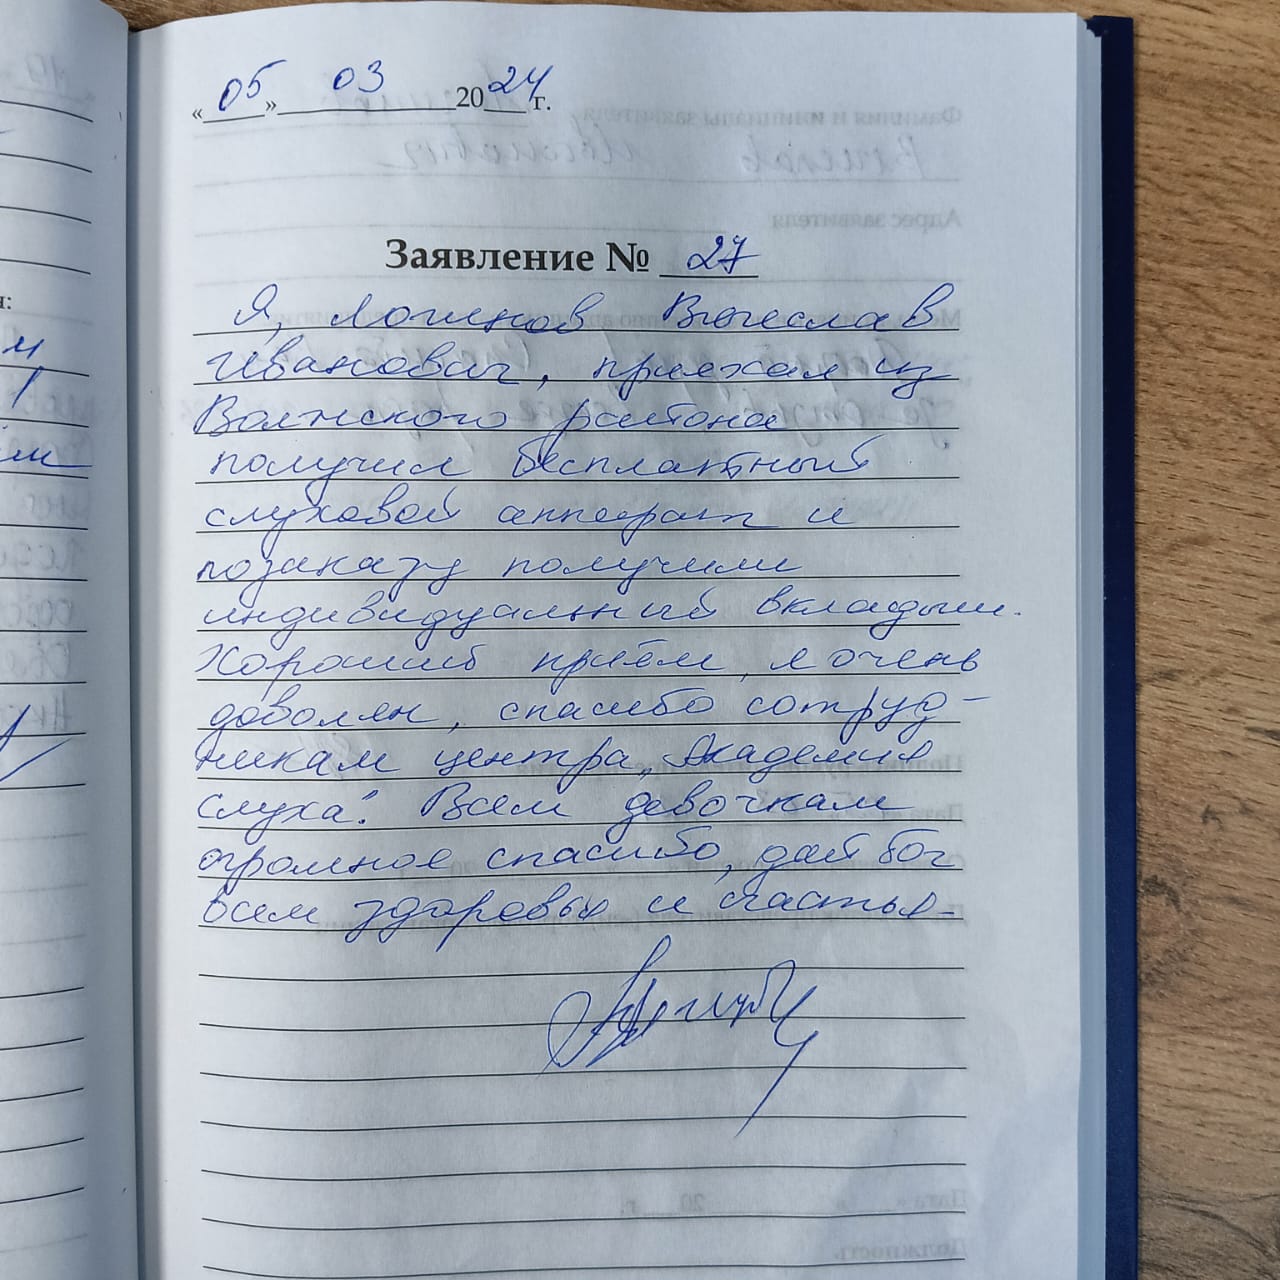 «05» 03 2024 г.
Заявление № 27
Я, Логинов Вячеслав
Иванович, приехал из
Волжского района
получил бесплатный
слуховой аппарат и
по заказу получили
индивидуальный вкладыш.
Хороший приём, я очень
доволен, спасибо сотруд-
никам центра „Академия
слуха". Всем девочкам
огромное спасибо, дай бог
всем здоровья и счастья.